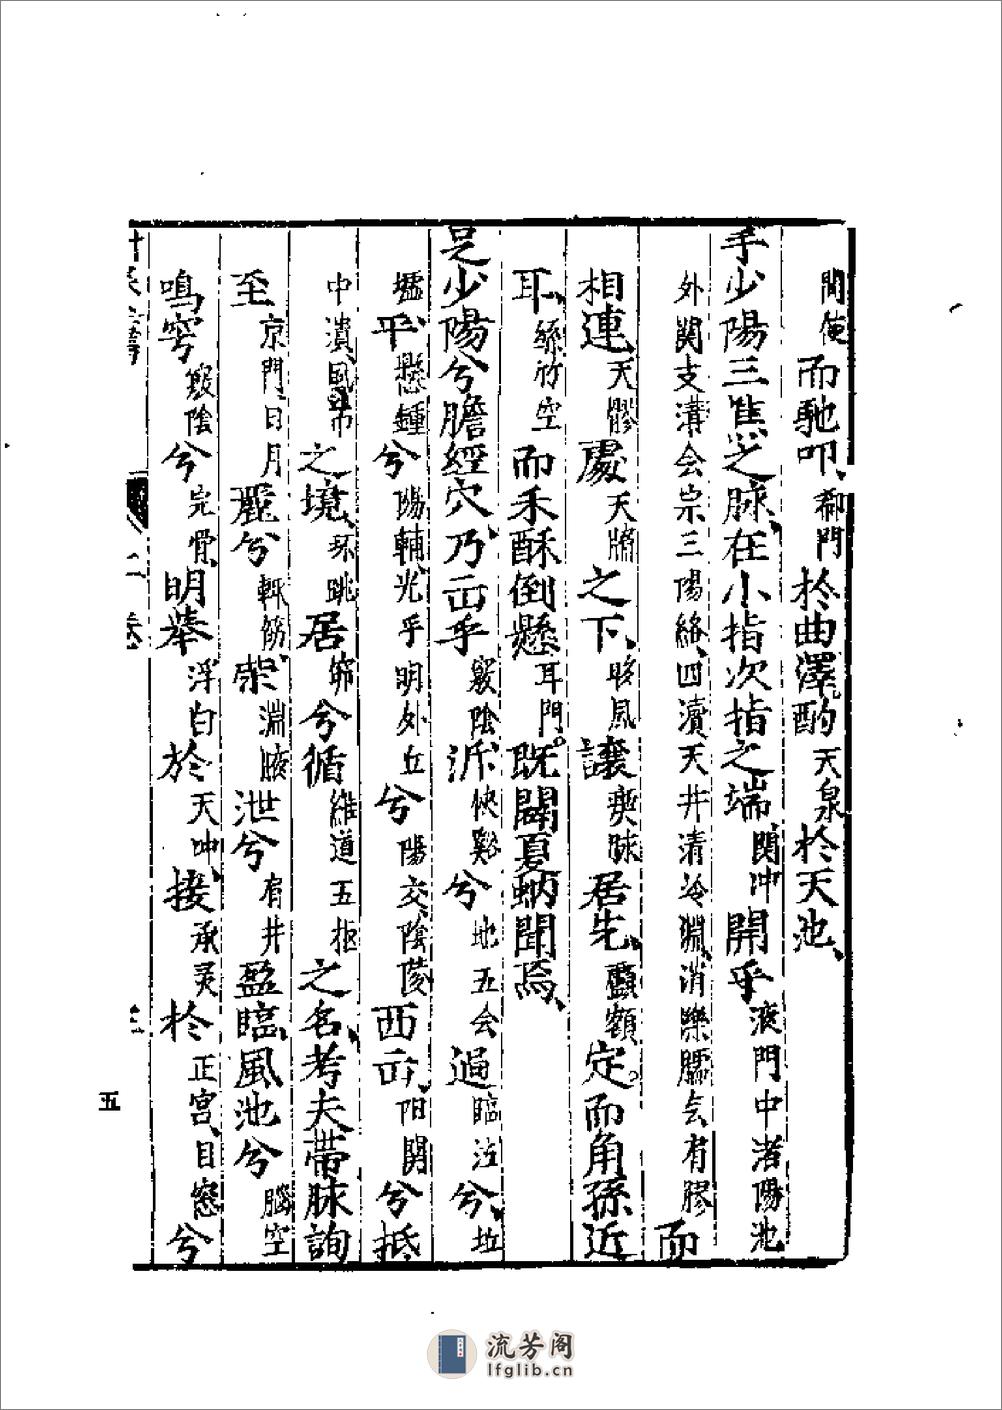 間使而馳叩、郄門於曲澤、酌天泉於天池、
手少陽三焦之脉、在小指次指之端、関冲開乎液門中渚陽池
外関支溝会宗三陽絡、四瀆天井清冷淵、消濼臑会肩髎而
相連天髎處天牖之下、翳風讓瘈脉居先、顱顖定。而角孫近
耳、絲竹空而禾酥倒懸耳門。既闢夏蚋聞焉、
足少陽兮膽經穴乃出乎竅陰泝、俠谿兮地五会過臨泣兮、坵
墟乎、懸鍾兮陽輔、光乎明外丘兮陽交、陰陵西出、阳関兮抵
中瀆、風市之境、环跳居節兮循維道五枢之名、考夫帶脉詢
至京門、日月麗兮輒筋、榮淵腋泄兮肩井盈臨、風池兮腦空
鳴窍竅陰兮完骨、明舉浮白於天冲、接承灵於正宫、目窓兮
上卷
五
流芳阁
lfglib.cn